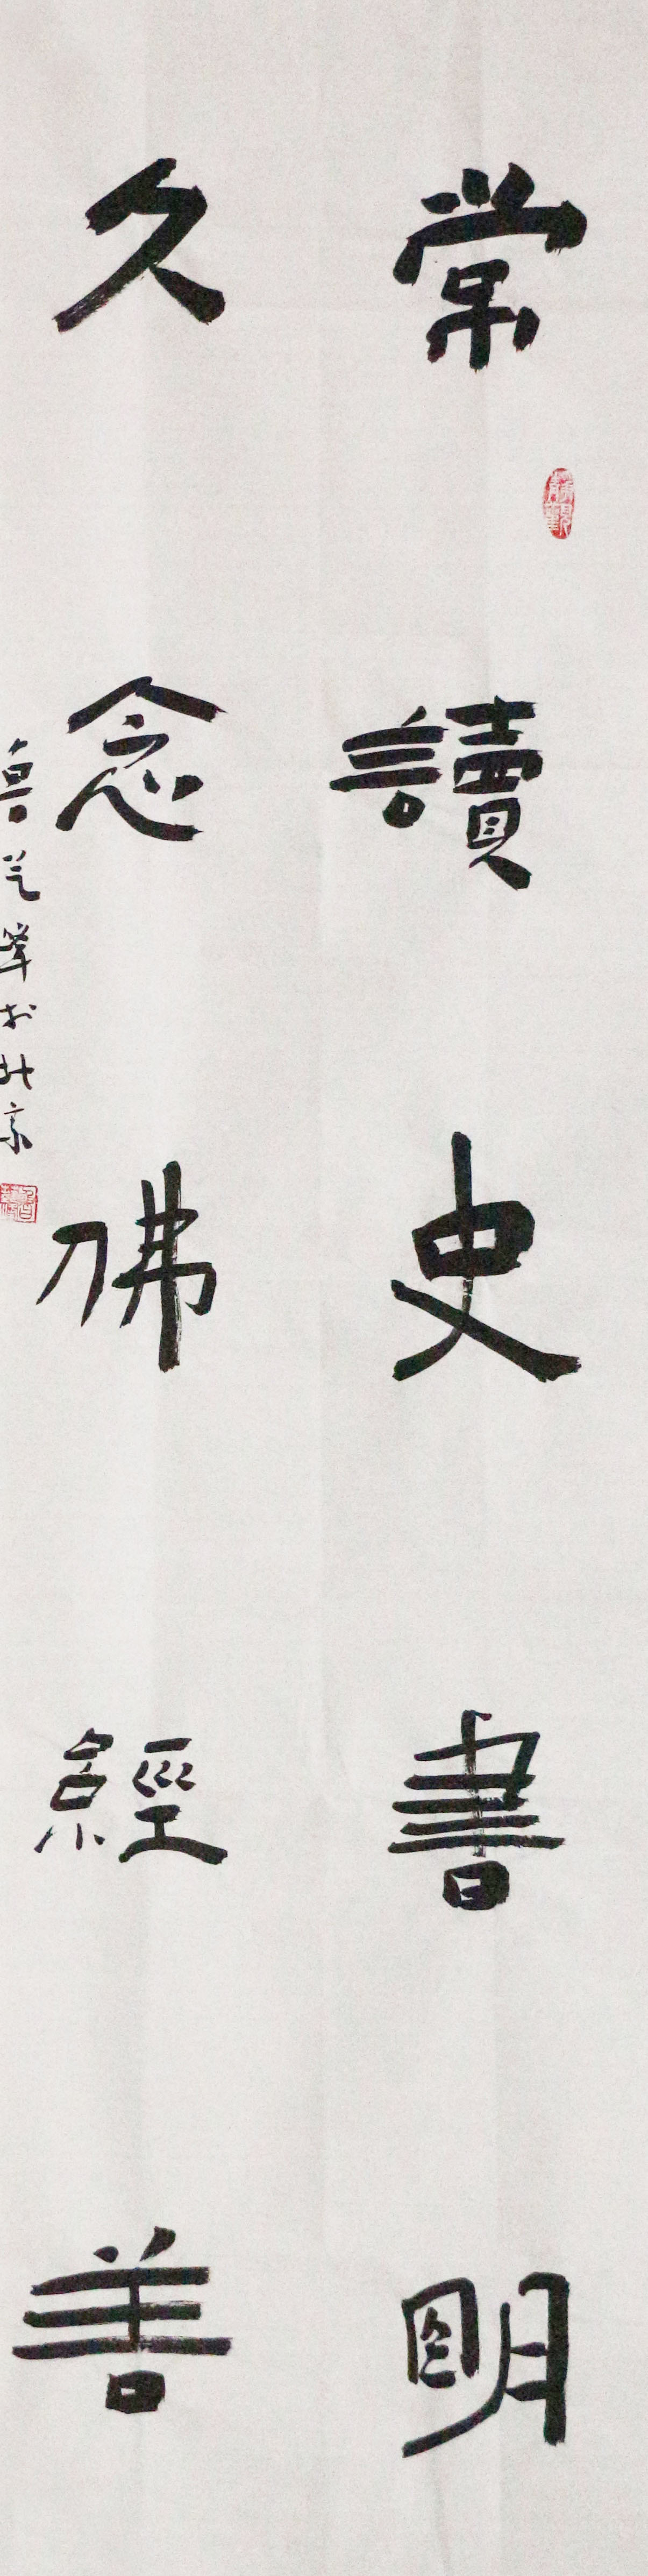 常讀史書明
久念佛經善
於北京